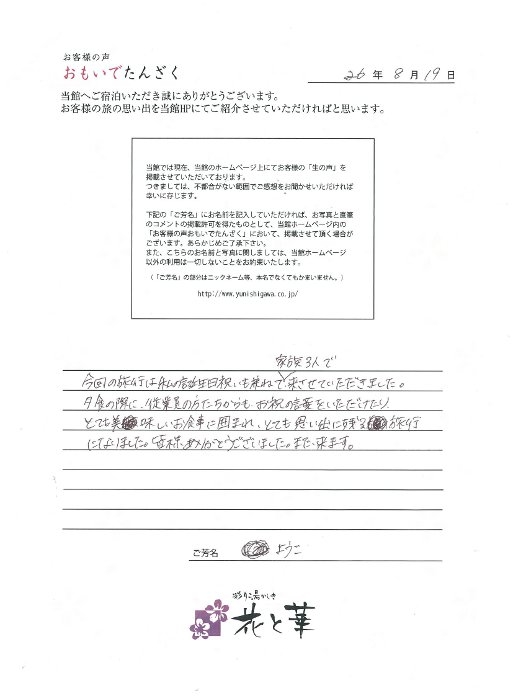 お客様の声
おもいでたんざく
26年8月19日
当館へご宿泊いただき誠にありがとうございます。
お客様の旅の思い出を当館HPにてご紹介させていただければと思います。
当館では現在、当館のホームページ上にてお客様の「生の声」を
掲載させていただいております。
つきましては、不都合がない範囲でご感想をお聞かせいただければ
幸いに存じます。
下記の「ご芳名」にお名前を記入していただければ、お写真と直筆
のコメントの掲載許可を得たものとして、当館ホームページ内の
「お客様の声おもいでたんざく」において、掲載させて頂く場合が
ございます。あらかじめご了承下さい。
また、こちらのお名前と写真に関しましては、当館ホームページ
以外の利用は一切しないことをお約束いたします。
（「ご芳名」の部分はニックネーム等、本名でなくてもかまいません。）
http://www.yunishigawa.co.jp/
家族3人で
今回の旅行は私の誕生日祝いも兼ねて来させていただきました。
夕食の際に、従業員の方たちからも お祝の言葉をいただけたり
とても美味しいお食事に囲まれ、とても思い出に残る旅行
になりました。皆様、ありがとうございました。また来ます。
ご芳名 ようこ
彩り湯かしき
花と華